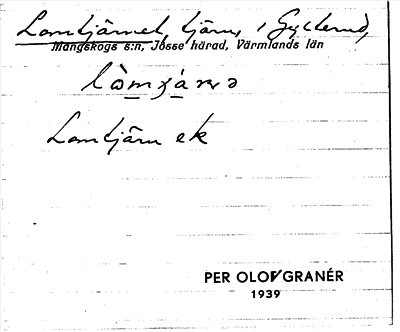 Lomtjärnet, tjärn, i Gylterud,
Mangskogs s:n, Jösse härad, Värmlands län
Lomtjärn ek
PER OLOF GRANÉR
1939